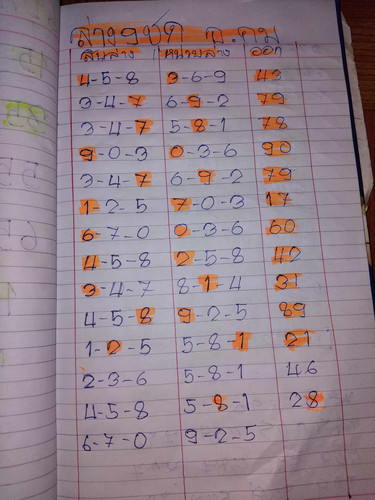 ล่าง ๑ ชุด
สิบล่าง หน่วยล่าง ออก
4-5-8 3-6-9 43
3-4-7 6-9-2 79
3-4-7 5-8-1 78
9-0-3 0-3-6 90
3-4-7 6-9-2 79
1-2-5 7-0-3 17
6-7-0 0-3-6 60
4-5-8 2-5-8 42
3-4-7 8-1-4 31
4-5-8 9-2-5 89
1-2-5 5-8-1 21
2-3-6 5-8-1 46
4-5-8 5-8-1 28
6-7-0 9-2-5